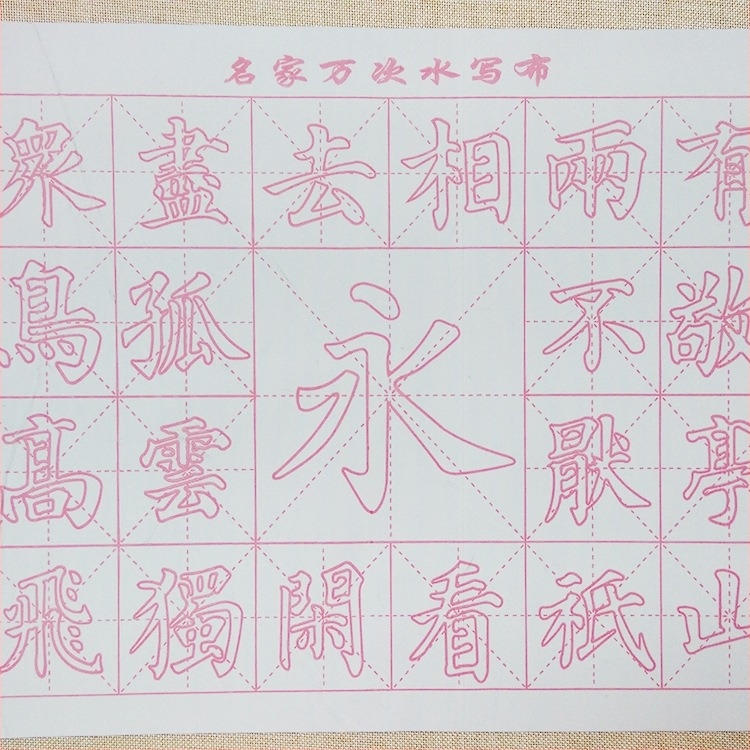 名家万次水写布
眾盡去相兩有
鳥孤永不敬
髙雲猒亭
飛獨閑看祇山